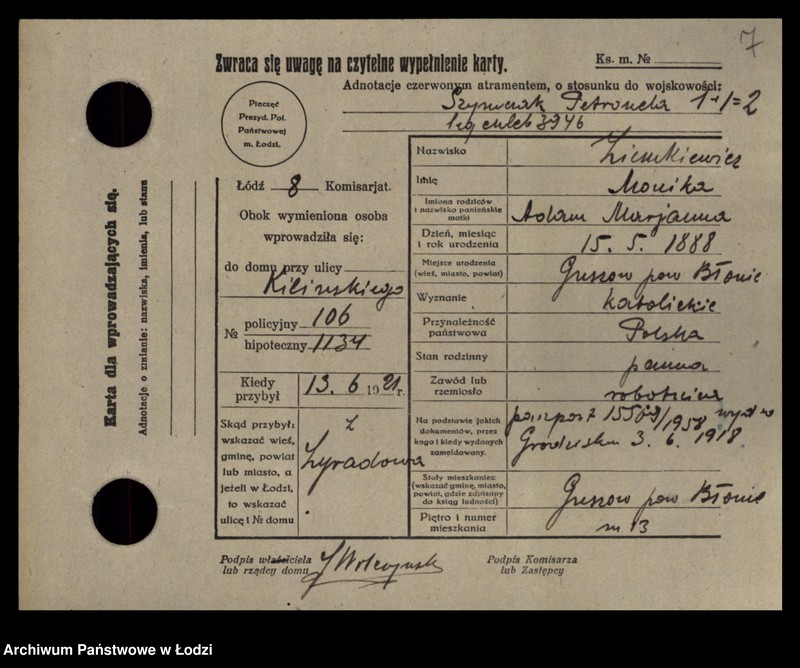 7
Zwraca się uwagę na czytelne wypełnienie karty.
Ks. m. №
Adnotacje czerwonym atramentem, o stosunku do wojskowości:
Petronela 1+1=2
3946
Pieczęć
Prezyd. Pol.
Państwowej
m. Łodzi.
Karta dla wprowadzających się.
Adnotacje o zmianie: nazwiska, imienia, lub stanu
Łódź 8 Komisarjat.
Obok wymieniona osoba
wprowadziła się:
do domu przy ulicy
Kilińskiego
№ policyjny 106
hipoteczny 1134
Kiedy
przybył 13. 6 1921 r.
Skąd przybył:
wskazać wieś,
gminę, powiat
lub miasto, a
jeżeli w Łodzi,
to wskazać
ulicę i № domu
z
Żyradowa
Nazwisko
Imię Monika
Imiona rodziców
i nazwisko panieńskie
matki
Adam Marjanna
Dzień, miesiąc
i rok urodzenia 15. 5. 1888
Miejsce urodzenia
(wieś, miasto, powiat)
Guzow pow Błonie
Wyznanie katolickie
Przynależność
państwowa Polska
Stan rodzinny panna
Zawód lub
rzemiosło robotnica
Na podstawie jakich
dokumentów, przez
kogo i kiedy wydanych
zameldowany.
paszport
3. 6. 1918
Stały mieszkaniec
(wskazać gminę, miasto,
powiat, gdzie zapisany
do ksiąg ludności)
Guzow pow Błonie
Piętro i numer
mieszkania m 13
Podpis właściciela
lub rządcy domu
Podpis Komisarza
lub Zastępcy
Archiwum Państwowe w Łodzi